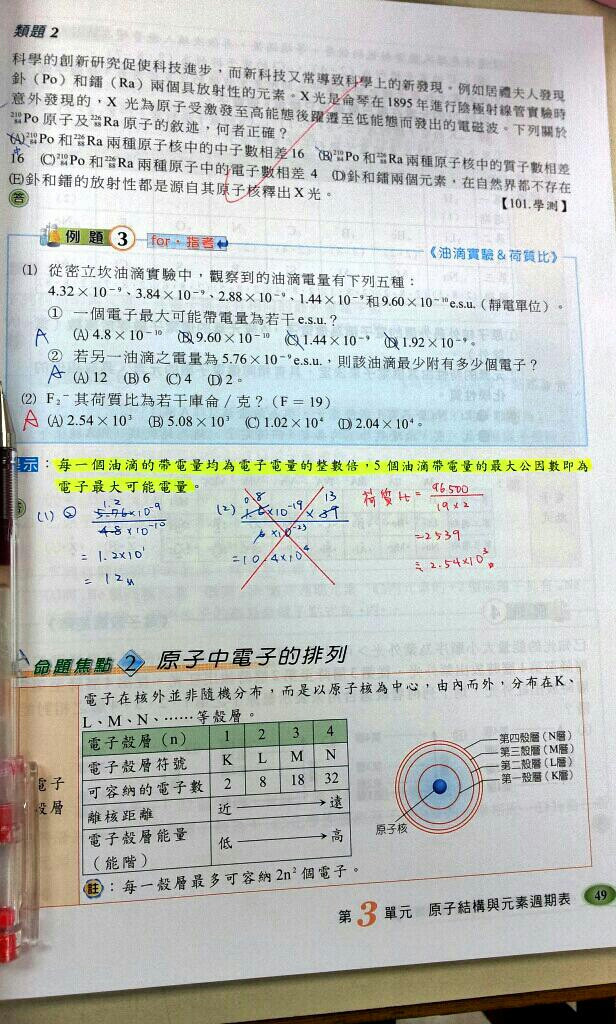 類題 2
科學的創新研究促使科技進步，而新科技又常導致科學上的新發現。例如居禮夫人發現
釙（Po）和鐳（Ra）兩個具放射性的元素。X 光是侖琴在 1895 年進行陰極射線管實驗時
意外發現的，X 光為原子受激發至高能態後躍遷至低能態而發出的電磁波。下列關於
²¹⁰₈₄Po 原子及 ²²⁶₈₈Ra 原子的敘述，何者正確？
(A) ²¹⁰₈₄Po 和 ²²⁶₈₈Ra 兩種原子核中的中子數相差 16 (B) ²¹⁰₈₄Po 和 ²²⁶₈₈Ra 兩種原子核中的質子數相差
16 (C) ²¹⁰₈₄Po 和 ²²⁶₈₈Ra 兩種原子中的電子數相差 4 (D)釙和鐳兩個元素，在自然界都不存在
(E)釙和鐳的放射性都是源自其原子核釋出 X 光。 【101.學測】
答
例題 3 for·指考 《油滴實驗＆荷質比》
(1) 從密立坎油滴實驗中，觀察到的油滴電量有下列五種：
4.32×10⁻⁹、3.84×10⁻⁹、2.88×10⁻⁹、1.44×10⁻⁹和9.60×10⁻¹⁰e.s.u.（靜電單位）。
① 一個電子最大可能帶電量為若干e.s.u.？
A (A) 4.8×10⁻¹⁰ (B) 9.60×10⁻¹⁰ (C) 1.44×10⁻⁹ (D) 1.92×10⁻⁹。
② 若另一油滴之電量為 5.76×10⁻⁹e.s.u.，則該油滴最少附有多少個電子？
A (A) 12 (B) 6 (C) 4 (D) 2。
(2) F₂⁻ 其荷質比為若干庫侖／克？（F＝19）
A (A) 2.54×10³ (B) 5.08×10³ (C) 1.02×10⁴ (D) 2.04×10⁴。
示：每一個油滴的帶電量均為電子電量的整數倍，5 個油滴帶電量的最大公因數即為
電子最大可能電量。
答
(1) ②
1.2
5.76×10⁻⁹
4.8×10⁻¹⁰
= 1.2×10¹
= 12
(2)
荷質比 = 96500
19×2
=2539
≒ 2.54×10³
命題焦點 2 原子中電子的排列
電子在核外並非隨機分布，而是以原子核為中心，由內而外，分布在K、
L、M、N、……等殼層。
電子殼層（n） 1 2 3 4
電子殼層符號 K L M N
可容納的電子數 2 8 18 32
離核距離 近 → 遠
電子殼層能量
（能階） 低 → 高
電子
殼層
第四殼層（N層）
第三殼層（M層）
第二殼層（L層）
第一殼層（K層）
原子核
註：每一殼層最多可容納 2n² 個電子。
第 3 單元 原子結構與元素週期表 49